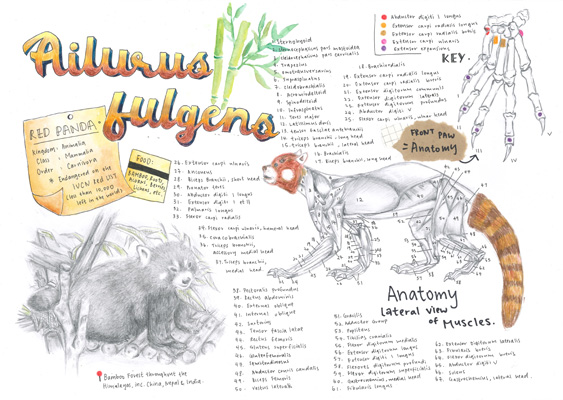 Ailurus
fulgens
RED PANDA.
Kingdom: Animalia
Class : Mammalia
Order : Carnivora
* Endangered on the
IUCN RED LIST
less than 10,000
left in the wild
FOOD:
BAMBOO, Roots,
Acorns, Berries,
Lichens, etc.
1. Sternohyoid
4. Trapezius
5. Omotransversarius
6. Supraspinatus
7. Cleidobrachialis
8. Acromiodeltoid
9. Spinodeltoid
10. Infraspinatus
11. Teres major
12. Latissimus dorsi
13. tensor fasciae antebrachii
14. triceps brachii, long head
15. triceps brachii, lateral head
16. Brachialis
17. Biceps brachii, long head
18. Brachioradialis
19. Extensor carpi radialis longus
20. Extensor carpi radialis brevis
21. Extensor digitorum communis
22. Extensor digitorum lateralis
23. Extensor digitorum profundus
24. Abductor digiti V
25. Flexor carpi ulnaris, ulnar head
26. Extensor carpi ulnaris
27. Anconeus
28. Biceps brachii, short head
29. Pronator teres
30. Abductor digiti I longus
31. Extensor digiti I et II
32. Palmaris longus
33. Flexor carpi radialis
34. Flexor carpi ulnaris, humeral head
35. Coracobrachialis
36. Triceps brachii,
accessory medial head
37. Triceps brachii,
medial head
38. Pectoralis profundus
39. Rectus abdominis
40. External oblique
41. Internal oblique
42. Sartorius
43. Tensor fascia latae
44. Rectus femoris
45. Gluteus superficialis
46. Gluteofemoralis
47. Semitendinosus
48. Abductor cruris caudalis
49. Biceps femoris
50. Vastus lateralis
51. Gracilis
52. Adductor group
53. Popliteus
54. Tibialis cranialis
55. Flexor digitorum medialis
56. Extensor digitorum longus
57. Extensor digiti I longus
58. Flexores digitorum profundi
59. Flexor digitorum superficialis
60. Gastrocnemius, medial head
61. Fibularis longus
62. Extensor digitorum lateralis
63. Fibularis brevis
64. Flexor digitorum brevis
65. Abductor digiti V
66. Soleus
67. Gastrocnemius, lateral head.
Abductor digiti I longus
Extensor carpi radialis longus
Extensor carpi radialis brevis
Extensor carpi ulnaris
Extensor expansions
KEY.
FRONT PAW
= Anatomy
Anatomy
lateral view
of Muscles.
Bamboo Forest throughout the
Himalayas, inc. China, Nepal & India.